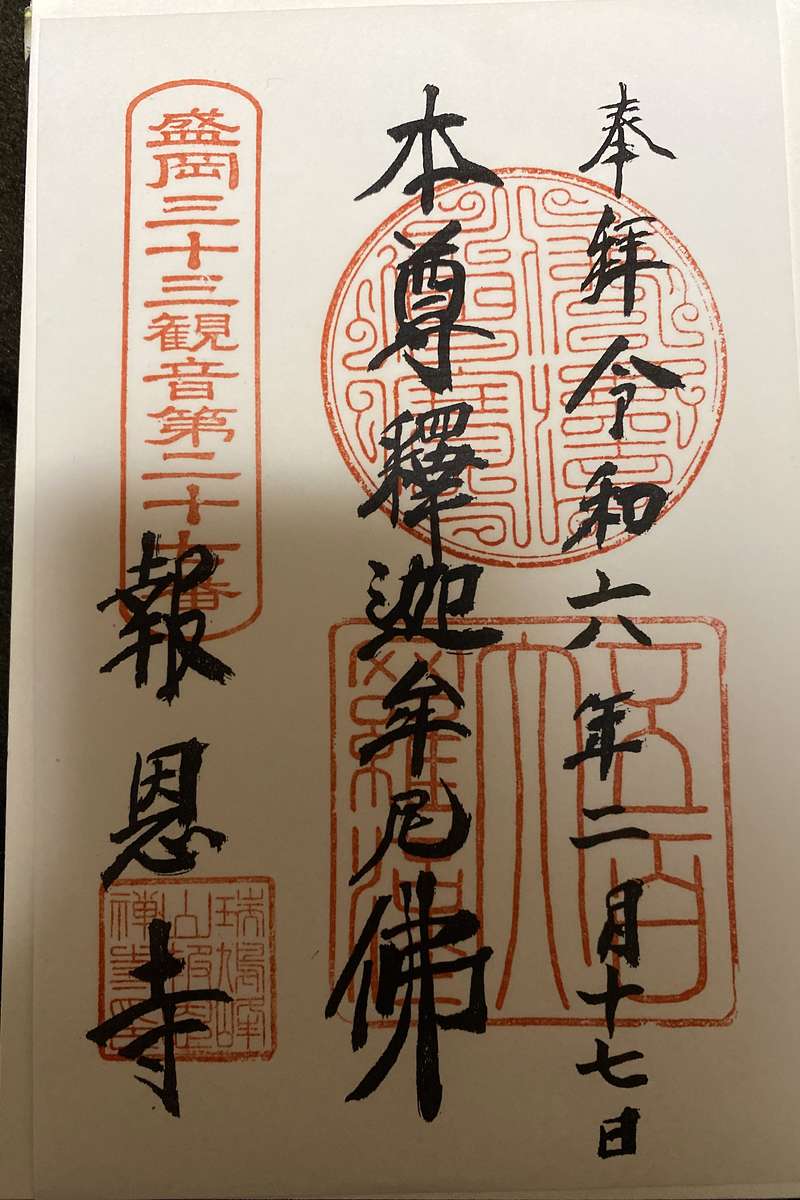 奉拝令和六年二月十七日
本尊釋迦牟尼佛
盛岡三十三観音第二十七番
報恩寺
五百
大
羅漢
瑞鳩峰
山報恩
禅寺印